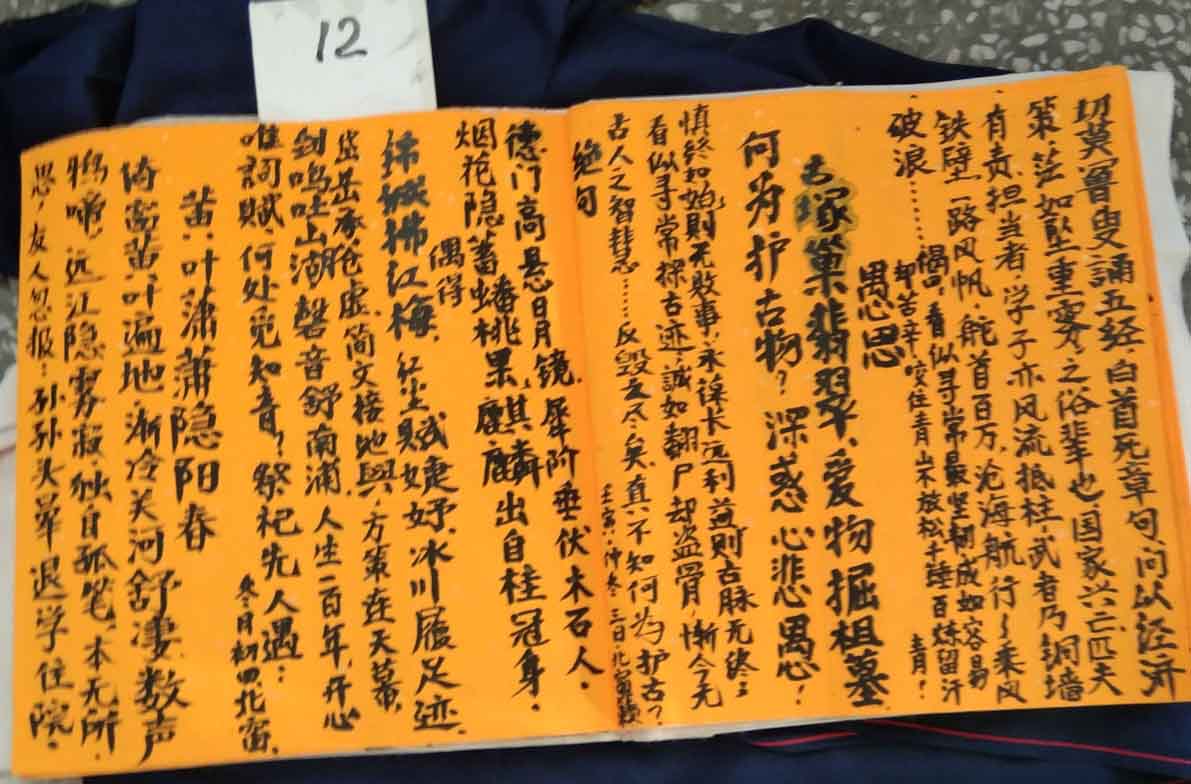 12
切莫鲁叟誦五经、白首死章句、问以经济
策、茫如坠重雾、之俗辈也、国家兴亡、匹夫
有责、担当者、学子亦风流抵柱、武者乃铜墙
铁壁、一路风帆、舵首百万、沧海航行、乘风
破浪………
偶回、看似寻常最坚韧、成如容易
却苦辛、咬住青山不放松、千锤百炼留汗
青！
愚思
古塚巢翡翠、爱物掘祖墓
何为护古物？深惑心悲愚心！
慎终如始、则无败事、永葆长远利益、则古脉无终、
看似寻常探古迹、誠如翻尸却盗骨、惭今无
古人之智慧……反毁之尽矣、真不知何为护古？
壬寅、仲冬、二日北窗
绝句
德门高悬日月镜、犀阶垂伏木石人、
烟花隐蓄蟠桃果、麒麟出自桂冠身、
偶得
拂城拂江梅、红尘赋婕妤、冰川履足迹、
岱岳承苍虚、简文接地舆、方策连天幕、
剑鸣吐山湖、馨音舒南浦、人生一百年、开心
唯詞赋、何处觅知音、祭祀先人遇：
冬月初四北窗、
黄叶萧萧隐阳春
倚窗黄叶遍地、渐冷关河舒凄、数声
鸦啼、远江隐雾寂、独自孤笔、本无所
思、友人忽报：孙孙头晕退学住院、